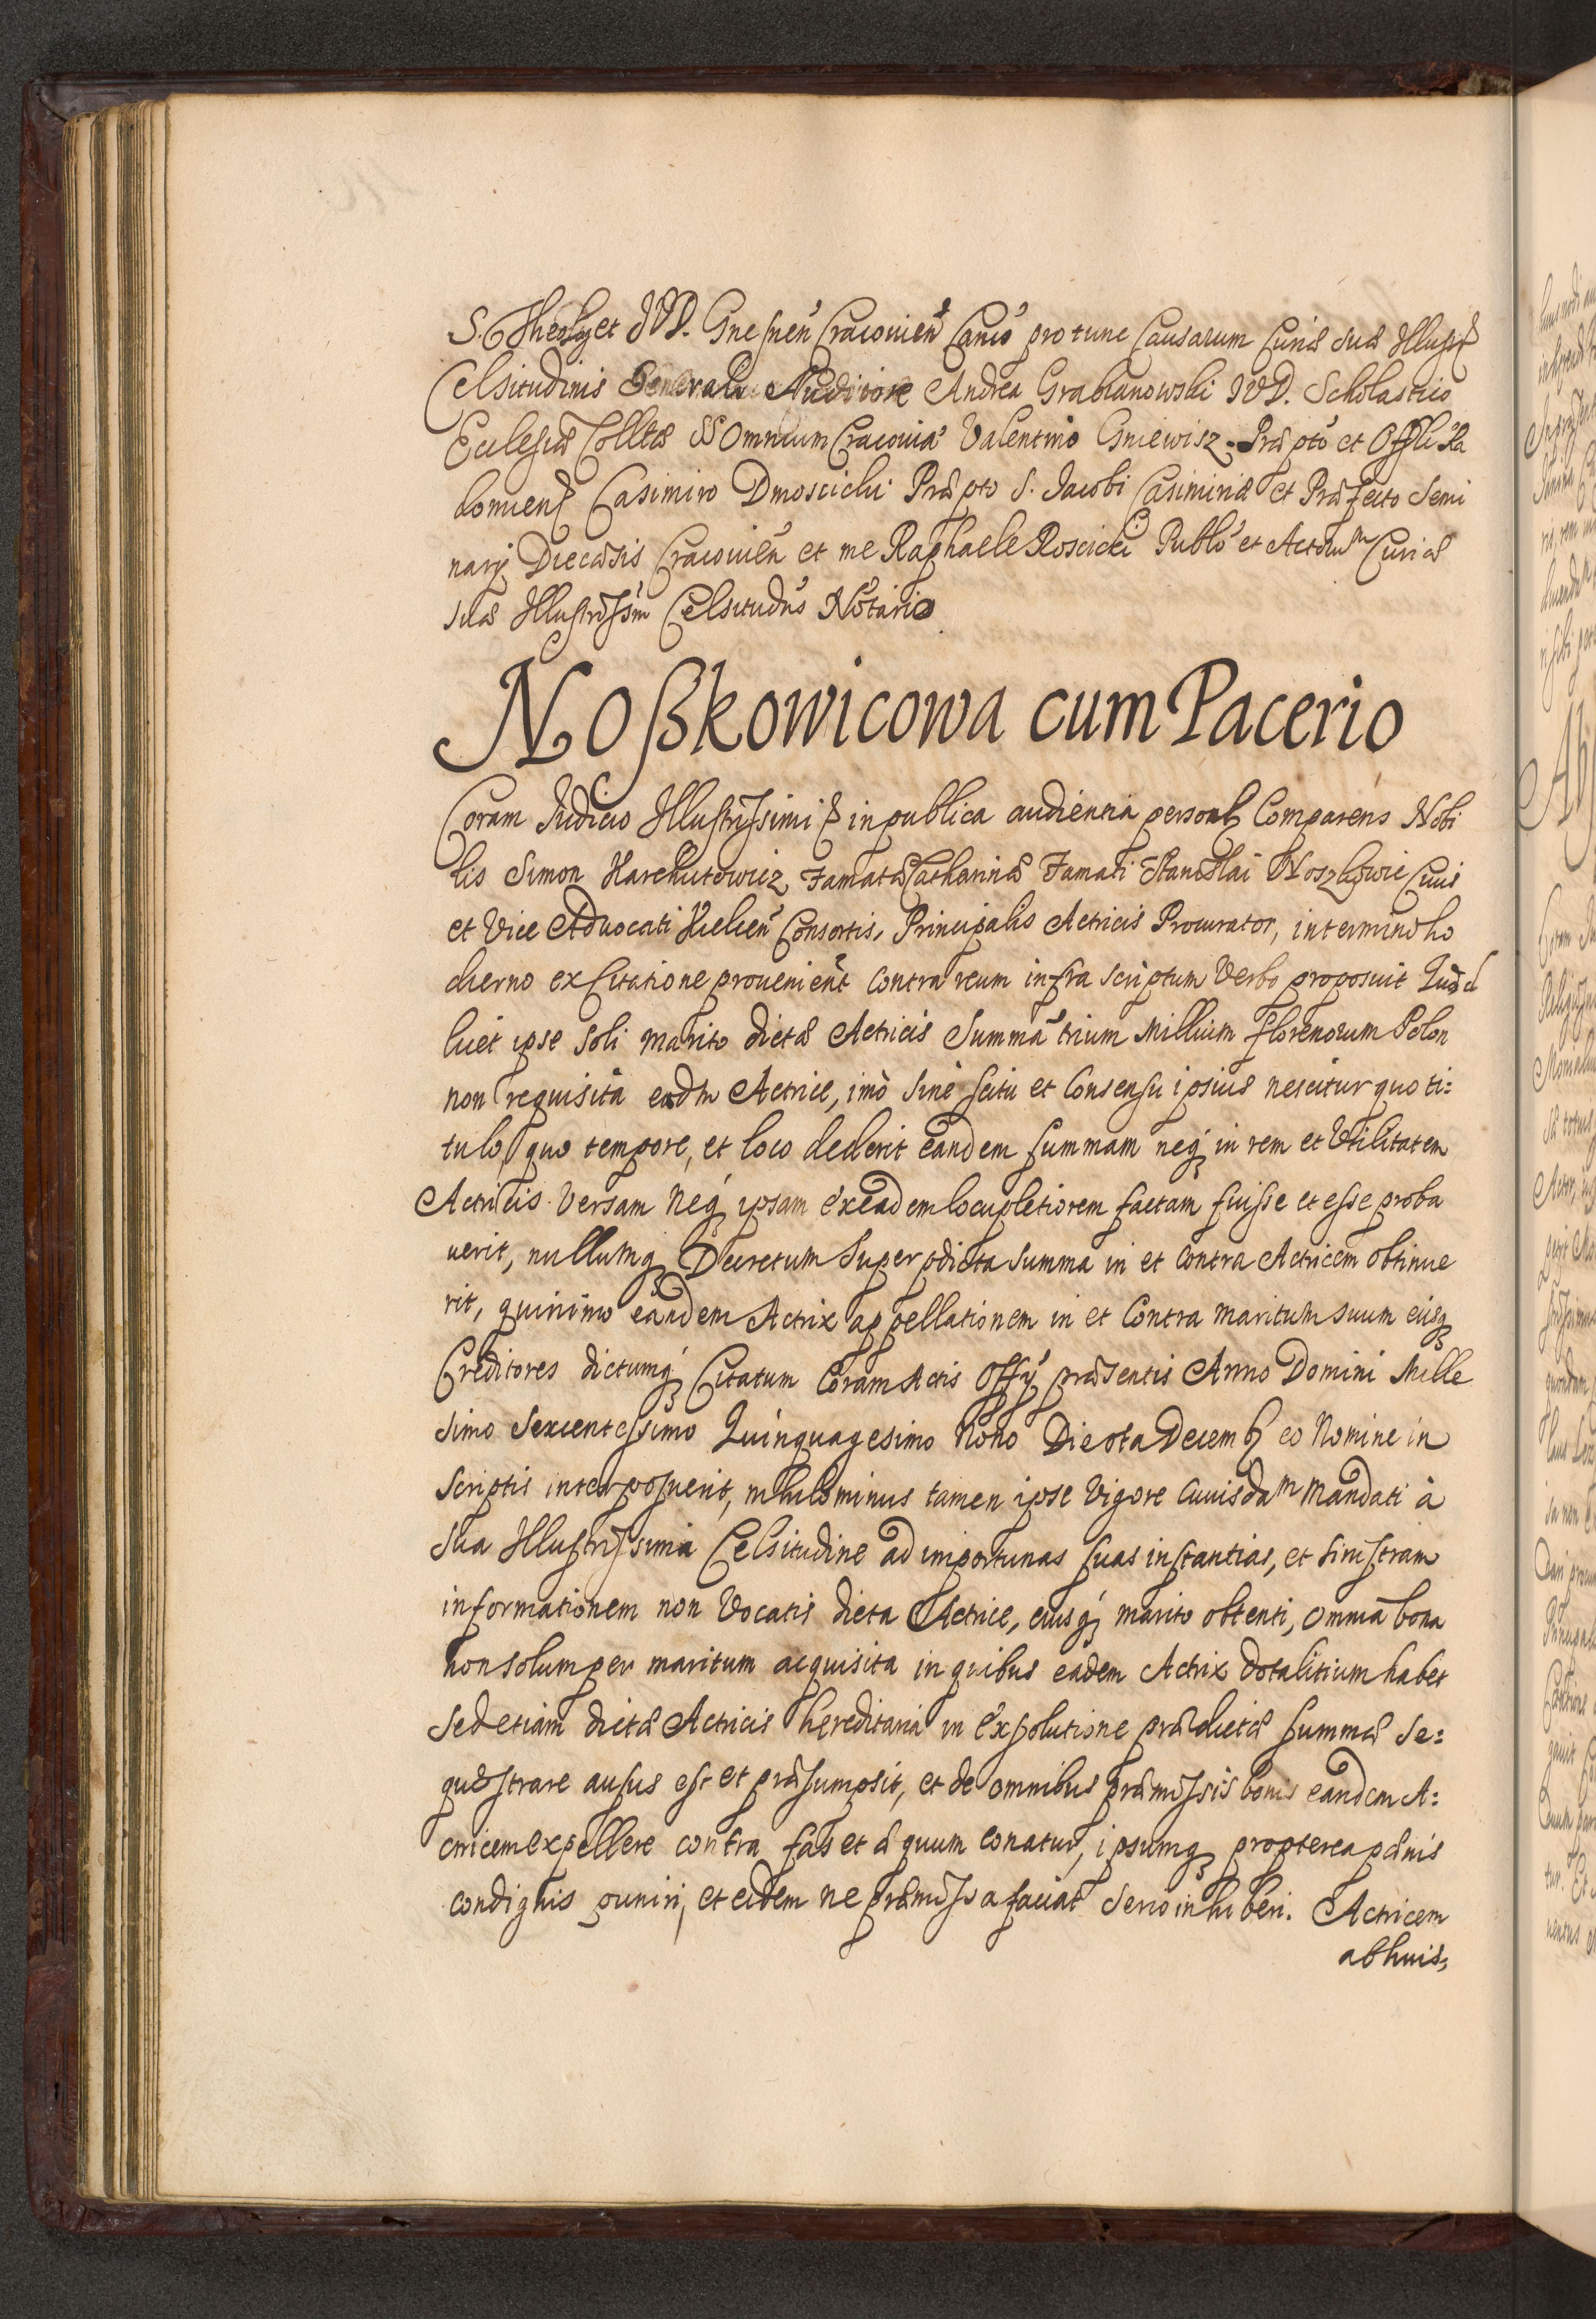 S. Theolog et JVD. Gnesnen Cracouien Canco pro tunc Causarum Curiæ suæ Illustr
Celsitudinis Generali Auditore Andrea Grabianowski JVD. Scholastico
Ecclesiæ Colltæ SS Omnium Cracouiæ Valentino Gniewisz Præpto et Offli
Casimiro Dmoscicki Præpto S. Jacobi Casimiriæ et Præfecto Semi
narij Diecæsis Cracouien et me Raphaele Roscicki Publo et Actorum Curiæ
suæ Illustrissm Celsitudns Notario
Noßkowicowa cum Pacerio
Coram Judicio Illustrissimi & in publica audientia personl Comparens Nobi
lis Simon Harchutowicz Famatæ Catharinæ Famati Stanislai Noszkowic Ciuis
et Vice Aduocati Kielcen Consortis, Principalis Actricis Procurator, in termino ho
dierno ex Citatione prouenient contra reum infra scriptum Verbo proposuit Quod
licet ipse soli marito dictæ Actricis Summa trium Millium florenorum Polon
non requisita eadm Actrice, imò sine scitu et Consensu ipsius nescitur quo ti=
tulo, quo tempore, et loco dederit eandem summam neq in rem et Vtilitatem
Actricis Versam neq ipsam ex eadem locupletiorem factam fuisse et esse proba
uerit, nullumq Decretum super pdicta summa in et contra Actricem obtinue
rit, quinimo eandem Actrix appellationem in et Contra maritum suum eiusq
Creditores dictumq Citatum Coram Actis Offij præsentis Anno Domini Mille
simo Sexcentessimo Quinquagesimo Nono Die Decemb eo Nomine in
Scriptis interposuerit, nihilominus tamen ipse Vigore Cuiusdam Mandati à
Sua Illustrissima Celsitudine ad importunas suas instantias, et sinistram
informationem non Vocatis dicta Actrice, eiusq marito obtenti, omnia bona
non solum per maritum acquisita in quibus eadem Actrix dotalitium habet
sed etiam dictæ Actricis hereditaria in exsolutione prædictæ summæ se=
questrare ausus est et præsumpsit, et de omnibus præmissis bonis eandem A=
ctricem expellere contra fas et æquum conatur, ipsumq propterea pænis
condignis puniri, et eidem ne præmissa faciat serio inhiberi. Actricem
ab huius,